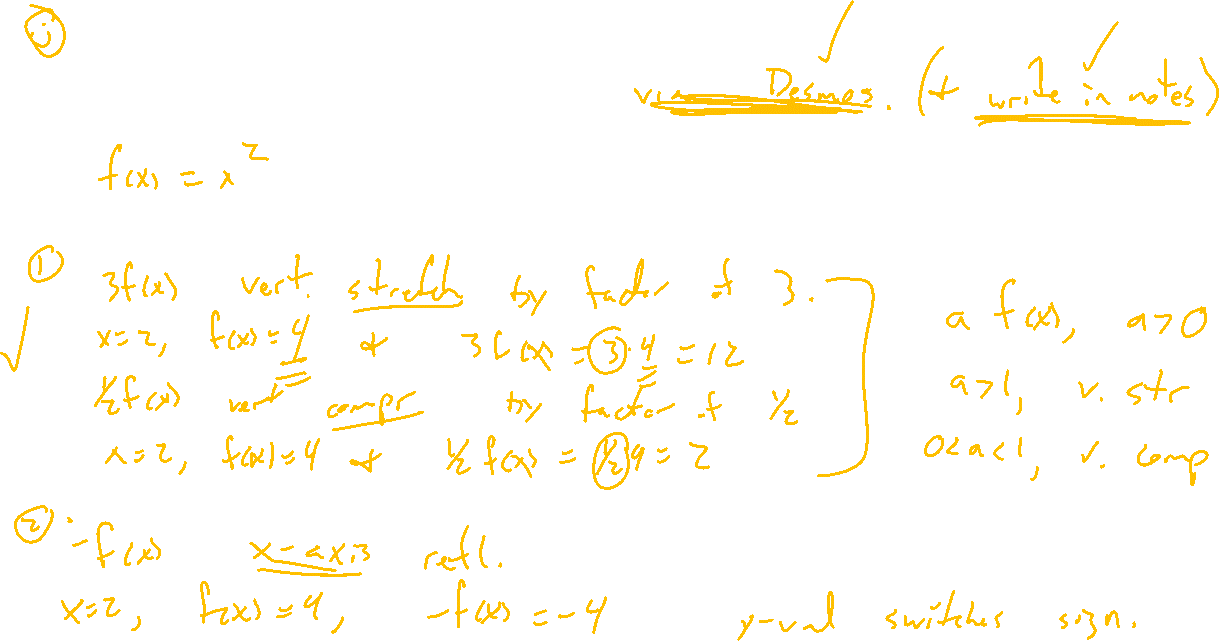 via Desmos. (+ write in notes)
f(x) = x²
① 3f(x) vert. stretch by factor of 3.
x=2, f(x)=4 & 3f(x)=3·4=12
½f(x) vert compr by factor of ½
x=2, f(x)=4 & ½f(x)=½4=2
a f(x), a>0
a>1, v. str
0<a<1, v. comp
② -f(x) x-axis refl.
x=2, f(x)=4, -f(x)=-4 y-val switches sign.